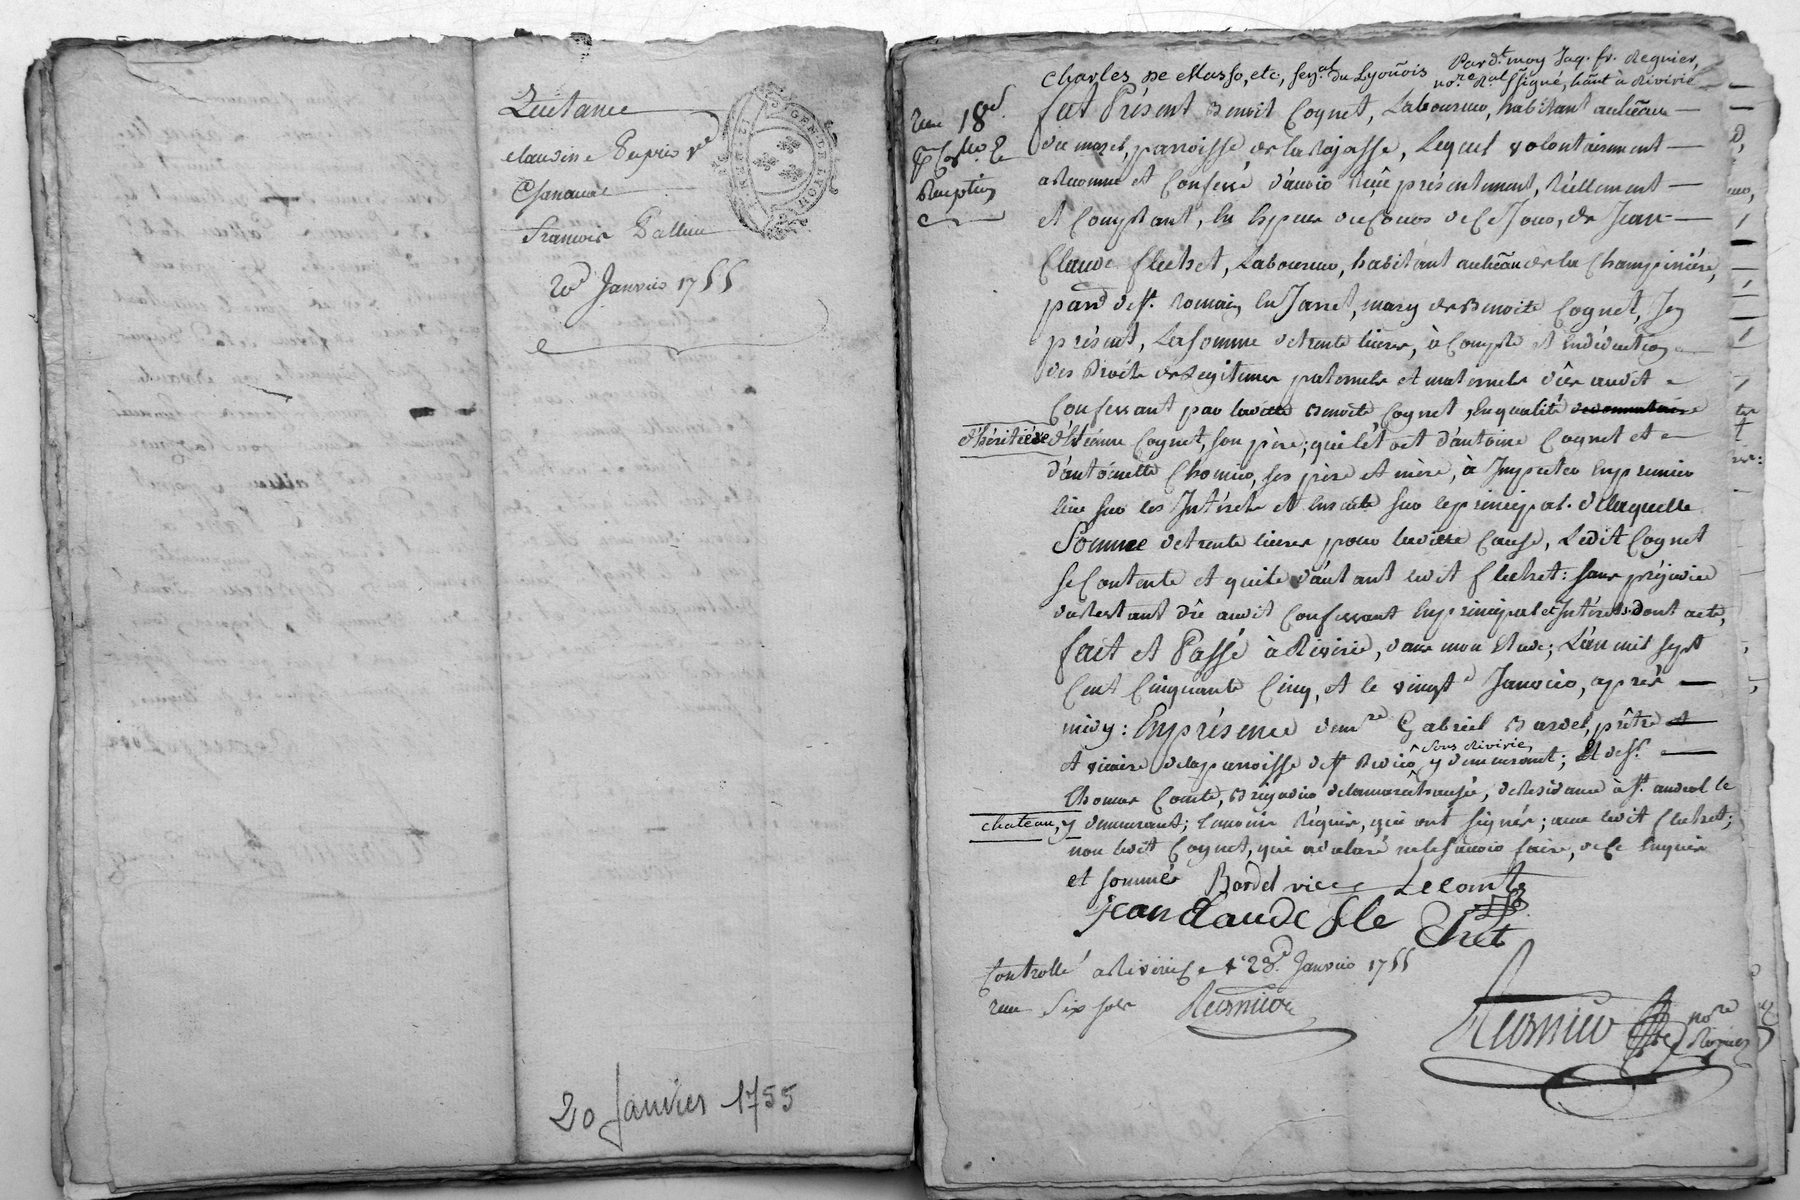 Quittance
claudine Dupré
françois
20e Janvier 1755
GEN. DE LYON
20 Janvier 1755
Charles de Masso, etc, sen.al du Lyonois Pard.t moy Jaq. fr. Regnier,
no.re R.al ssigné, hãnt à Riverie
reçu 18 d
Reception
fut Présent Benoit Cognet, Laboureur, habitant aulieau
du maret, parroisse de la Rajasse, Lequel volontairement
a Reconnu et Confessé d'avoir Reçû présentement, Réellement
et Comptant, En Espèces du Cours de Ce Jour, de Jean
Claude flechet, Laboureur, habitant aulieau de la Champinière,
parr.e de st. Romain En Jarret, mary de Benoite Cognet, Icy
présent, La somme de trente livres, à Compte et En déduction
des Droits de Legitimes paternels et maternels dûs audit
Confessant par ladite Benoite Cognet, En qualité
d'héritière d'Etienne Cognet, son père; qui l'étoit d'antoine Cognet et
d'antoinette Chomier, ses père et mère, à Imputer En premier
lieu sur les Intérets et Ensuite sur le principal. de laquelle
Somme de trente livres pour ladite Cause, Ledit Cognet
se Contente et quite d'autant ledit flechet: sans préjudice
du Restant dû audit Confessant En principal et Intérets. dont acte,
fait et Passé à Riverie, dans mon Etude; L'an mil sept
Cent Cinquante Cinq, et le vingte Janvier, après
midy: En présence de m.re Gabriel Bardel, prêtre et
et vicaire de la parroisse de st Didier sous Riverie, y demeurant; Et de sr.
Thomas Comte, Brigadier de la maréchaussée, de Résidence à st. andeol le
chateau, y demeurant; témoins Réquis, qui ont signés; avec ledit flechet;
non ledit Cognet, qui a déclaré ne le savoir faire, de Ce Enquis
et sommés Bardel vic.e Lecomte
jean claude fle chet
Controllé a Riverie le 23.e Janvier 1755
reçu Six sols Regnier
Regnier no.re